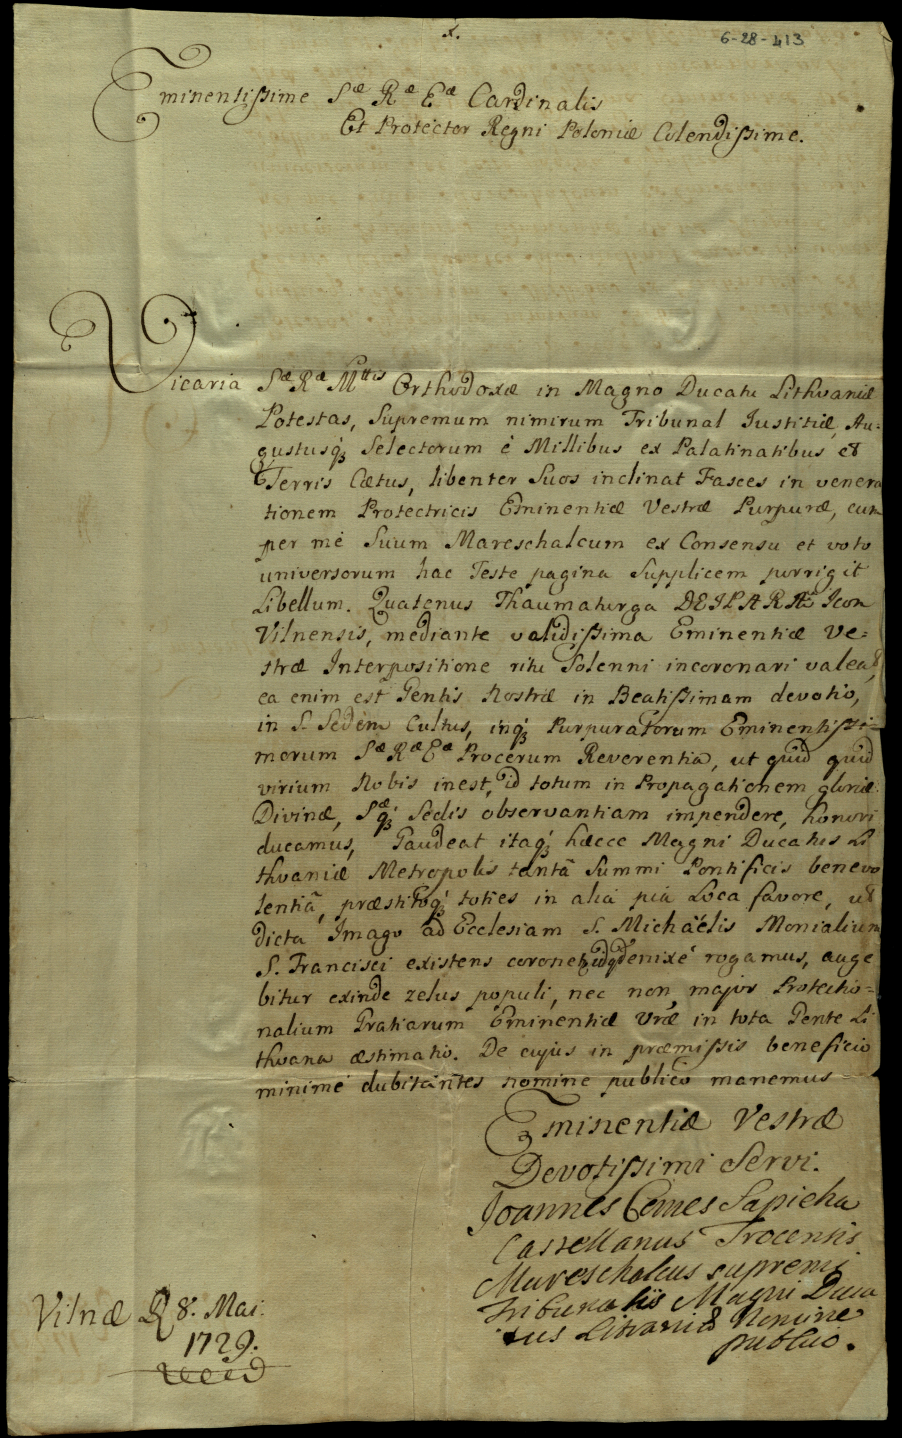 x.
6-28-413
Eminentissime Sæ Ræ Eæ Cardinalis
Et Protector Regni Poloniæ Colendissime.
Vicaria Sæ Ræ Mttis Orthodoxæ in Magno Ducatu Lithvaniæ
Potestas, Supremum nimirum Tribunal Iustitiæ, Au=
gustusq́; Selectorum é Millibus ex Palatinatibus et
Terris Cætus, libenter Suos inclinat Fasces in venera
tionem Protectricis Eminentiæ Vestræ Purpuræ, cum
per mé Suum Mareschalcum ex Consensu et voto
universorum hac Teste pagina Supplicem porrigit
Libellum. Quatenus Thaumaturga DEIPARÆ Icon
Vilnensis, mediante validissima Eminentiæ Ve=
stræ Interpositione ritu Solenni incoronari valeat,
ea enim est Gentis Nostræ in Beatissimam devotio,
in S. Sedem Cultus, inq́; Purpuratorum Eminentissi=
morum Sæ Ræ Eæ Procerum Reverentia, ut quid quid
virium Nobis inest, id totum in Propagationem gloriæ
Divinæ, Sæq́; Sedis observantiam impendere, honori
ducamus, Gaudeat itaq́; hæcce Magni Ducatus Li
thvaniæ Metropolis tantâ Summi Pontificis benevo
lentiâ, præstitoq́; toties in alia pia Loca favore, ut
dicta Imago ad Ecclesiam S. Michaélis Monialium
S. Francisci existens coronetur, idq́; enixé rogamus, auge
bitur exinde zelus populi, nec non major Protectio=
nalium Gratiarum Eminentiæ Vræ in tota Gente Li
thvana æstimatio. De cujus in præmissis beneficio
minimé dubitantes nomine publico manemus
Eminentiæ Vestræ
Devotissimi Servi.
Joannes Comes Sapieha
Castellanus Trocensis
Mareschalcus supremi
Tribunalis Magni Duca
tus Litvaniæ Nomine
publico.
Vilnæ D 8. Mai:
1729.